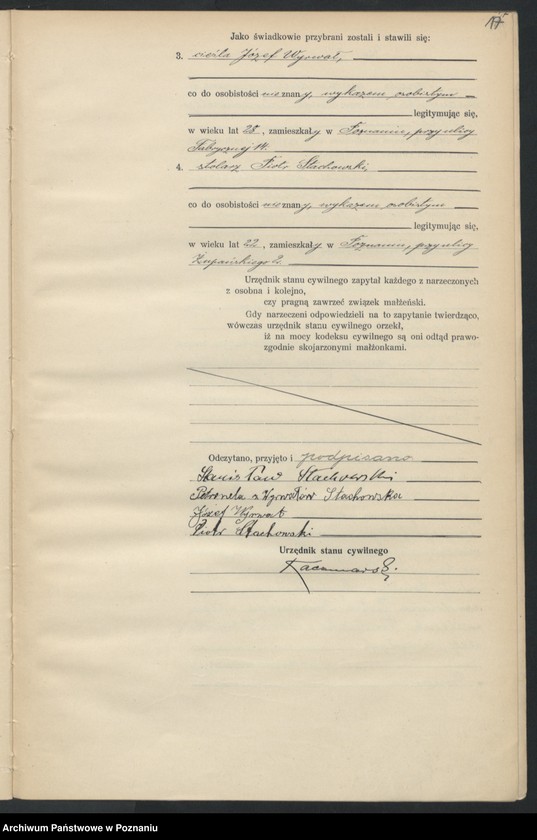 17
Jako świadkowie przybrani zostali i stawili się:
3. cieśla Józef Wyrwał,
co do osobistości nieznany, wykazem osobistym
legitymując się,
w wieku lat 28, zamieszkały w Poznaniu, przy ulicy
Fabrycznej 14.
4. stolarz Piotr Stachowski,
co do osobistości nieznany, wykazem osobistym
legitymując się,
w wieku lat 22, zamieszkały w Poznaniu, przy ulicy
Żupańskiego 2.
Urzędnik stanu cywilnego zapytał każdego z narzeczonych
z osobna i kolejno,
czy pragną zawrzeć związek małżeński.
Gdy narzeczeni odpowiedzieli na to zapytanie twierdząco,
wówczas urzędnik stanu cywilnego orzekł,
iż na mocy kodeksu cywilnego są oni odtąd prawo-
zgodnie skojarzonymi małżonkami.
Odczytano, przyjęto i podpisano
Stanisław Stachowski
Petronela z Wyrwałów Stachowska
Józef Wyrwał
Piotr Stachowski
Urzędnik stanu cywilnego
Archiwum Państwowe w Poznaniu